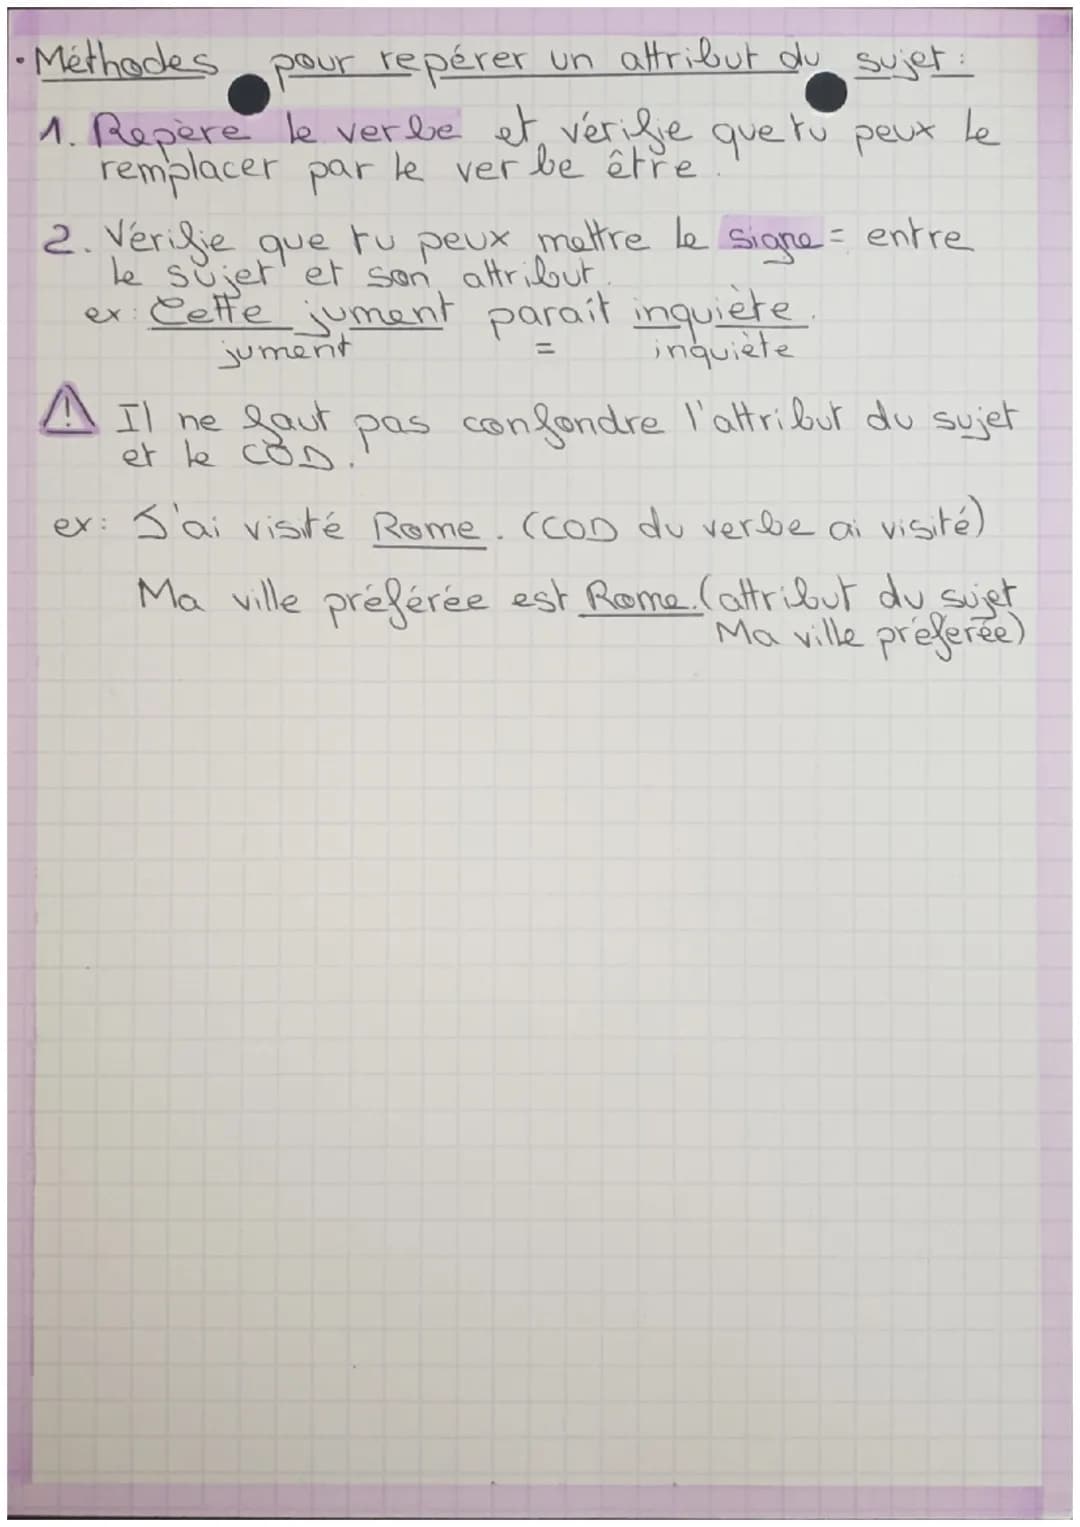 · Méthodes pour repérer un attribut du sujet :
1. Repère le verbe et vérifie que tu peux le
remplacer par le verbe être.
2. Vérifie que tu peux mettre le signe = entre
le sujet et son attribut.
ex: Cette jument parait inquiète.
jument = inquiète
⚠ Il ne faut pas confondre l'attribut du sujet
et le COD.
ex: J'ai visité Rome. (COD du verbe ai visité)
Ma ville préférée est Rome. (attribut du sujet
Ma ville préferée)